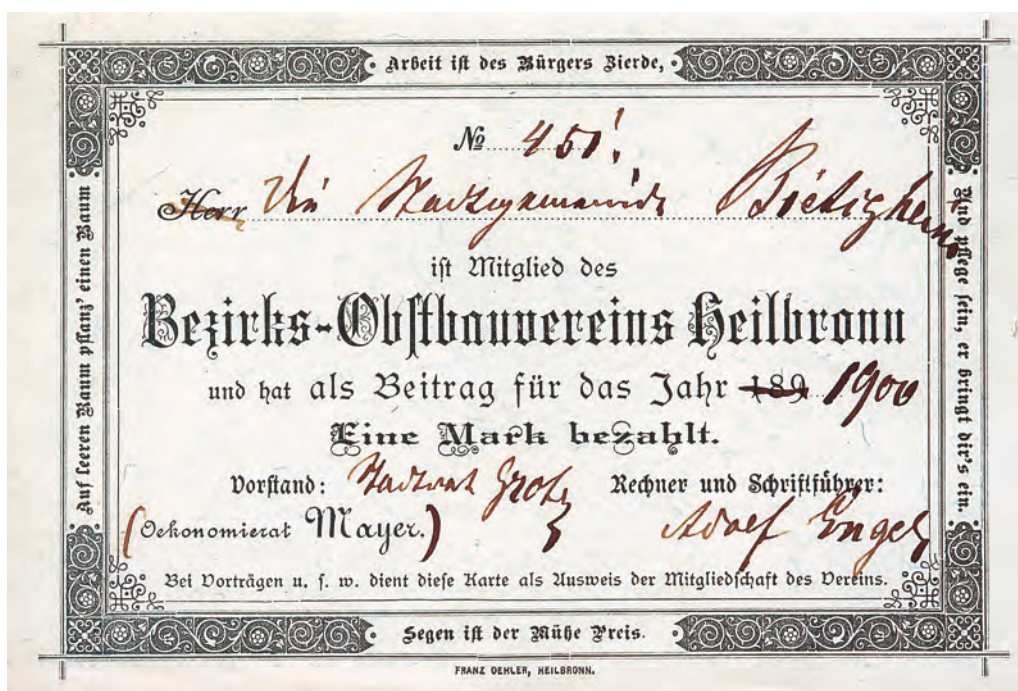 Arbeit ist des Bürgers Zierde,
Auf leeren Raum pflanz' einen Baum
Und pflege sein, er bringt dir's ein.
№ 451.
Herr Die Stadtgemeinde Bietigheim
ist Mitglied des
Bezirks-Obstbauvereins Heilbronn
und hat als Beitrag für das Jahr 189 1900
Eine Mark bezahlt.
Vorstand: Stadtrat Grotz Rechner und Schriftführer:
(Oekonomierat Mayer.) Adolf Engel
Bei Vorträgen u. s. w. dient diese Karte als Ausweis der Mitgliedschaft des Vereins.
Segen ist der Mühe Preis.
FRANZ OEHLER, HEILBRONN.